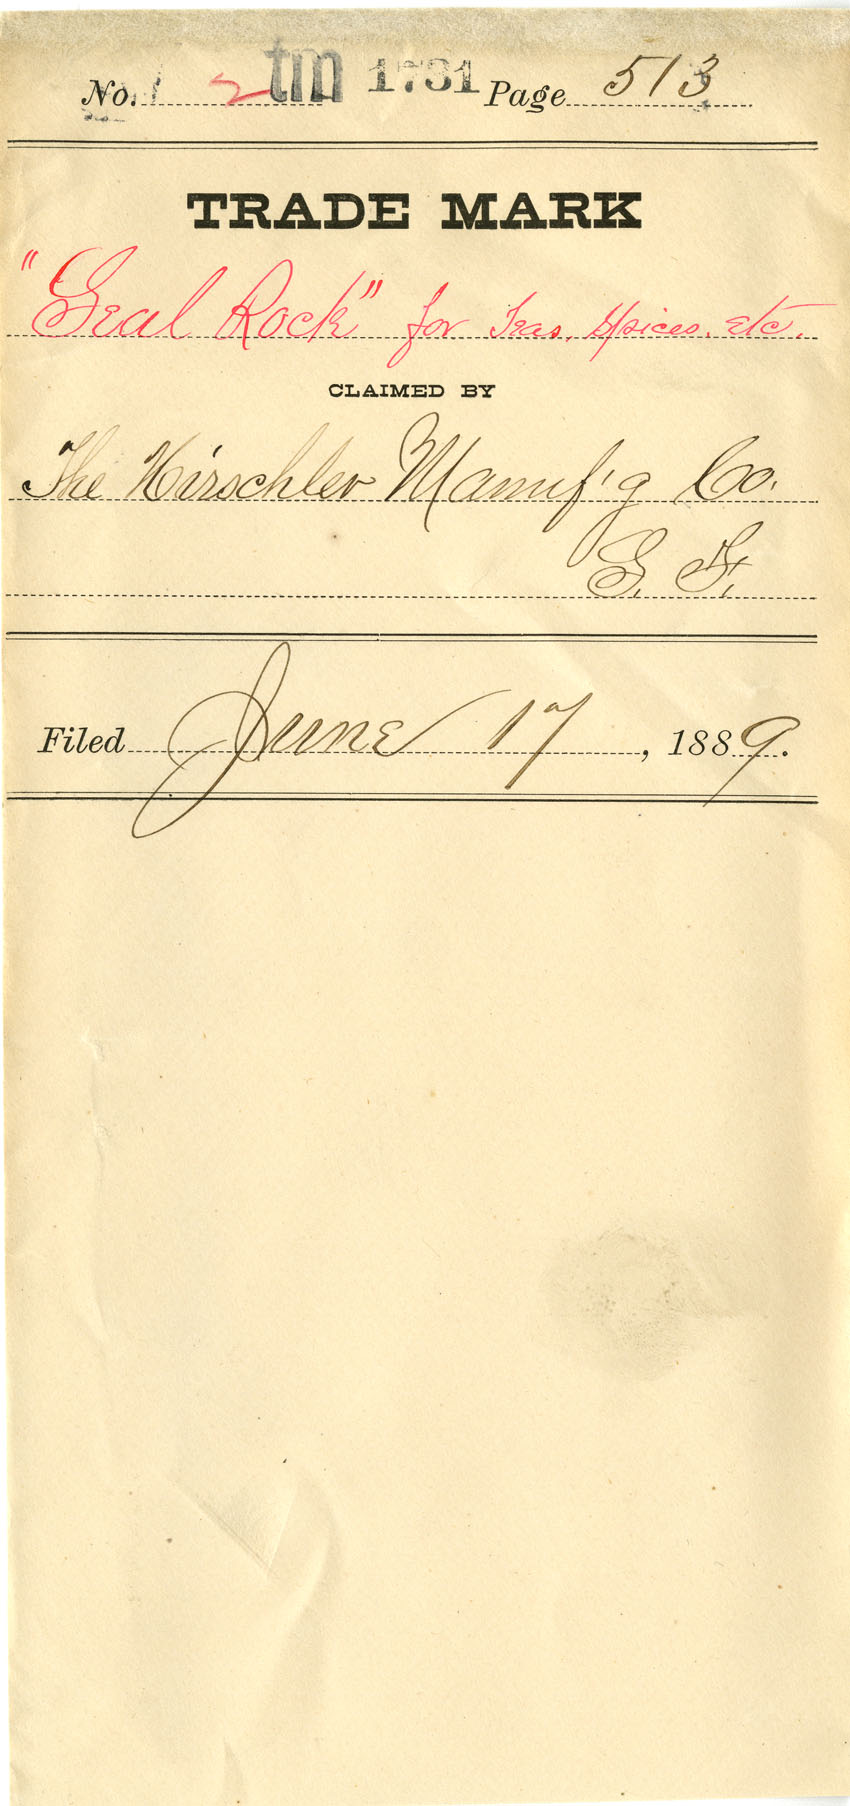 No. 2 tm 1731 Page 513
TRADE MARK
"Seal Rock" for Teas, Spices, etc.
CLAIMED BY
The Hirschler Manuf'g Co.
S. F.
Filed June 17, 1889.